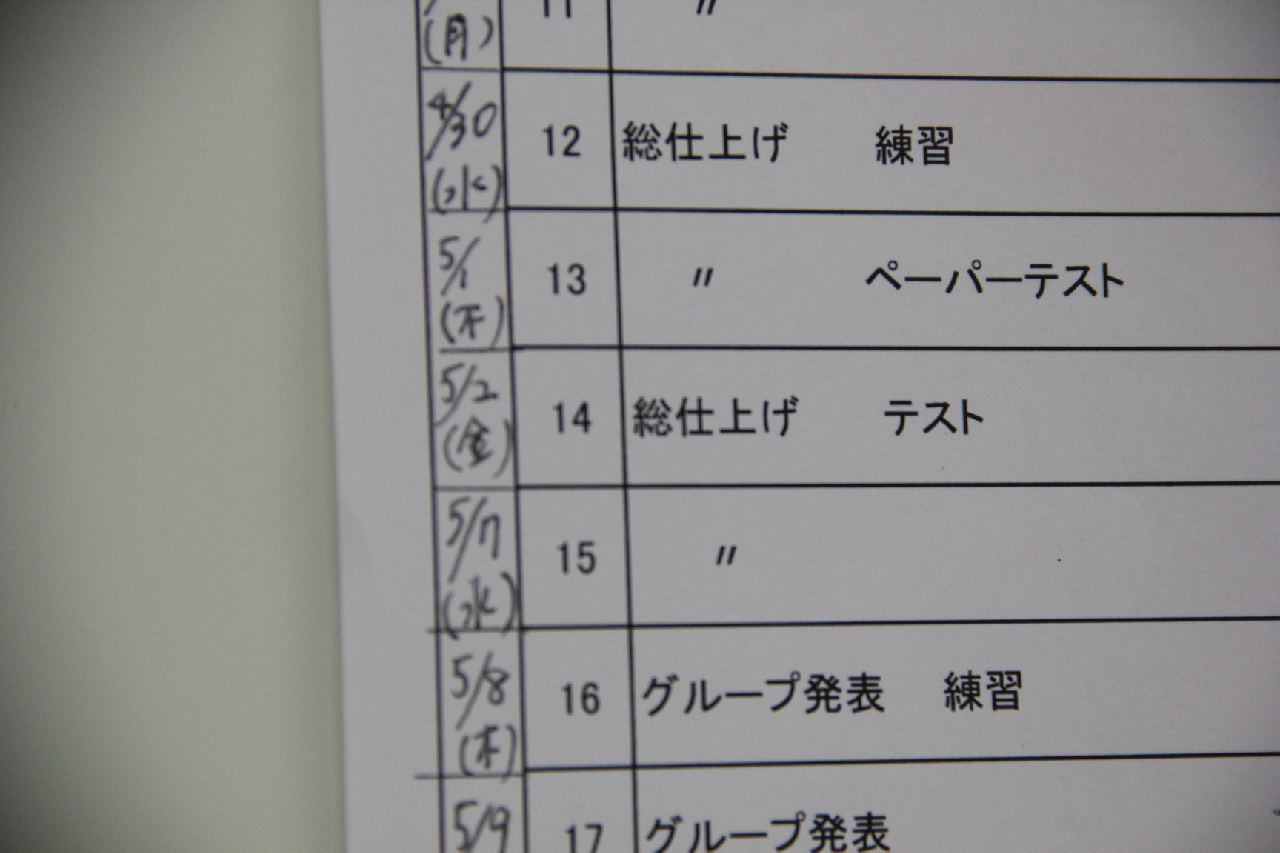 (月) 11 〃
4/30 (水) 12 総仕上げ 練習
5/1 (木) 13 〃 ペーパーテスト
5/2 (金) 14 総仕上げ テスト
5/7 (水) 15 〃
5/8 (木) 16 グループ発表 練習
5/9 17 グループ発表